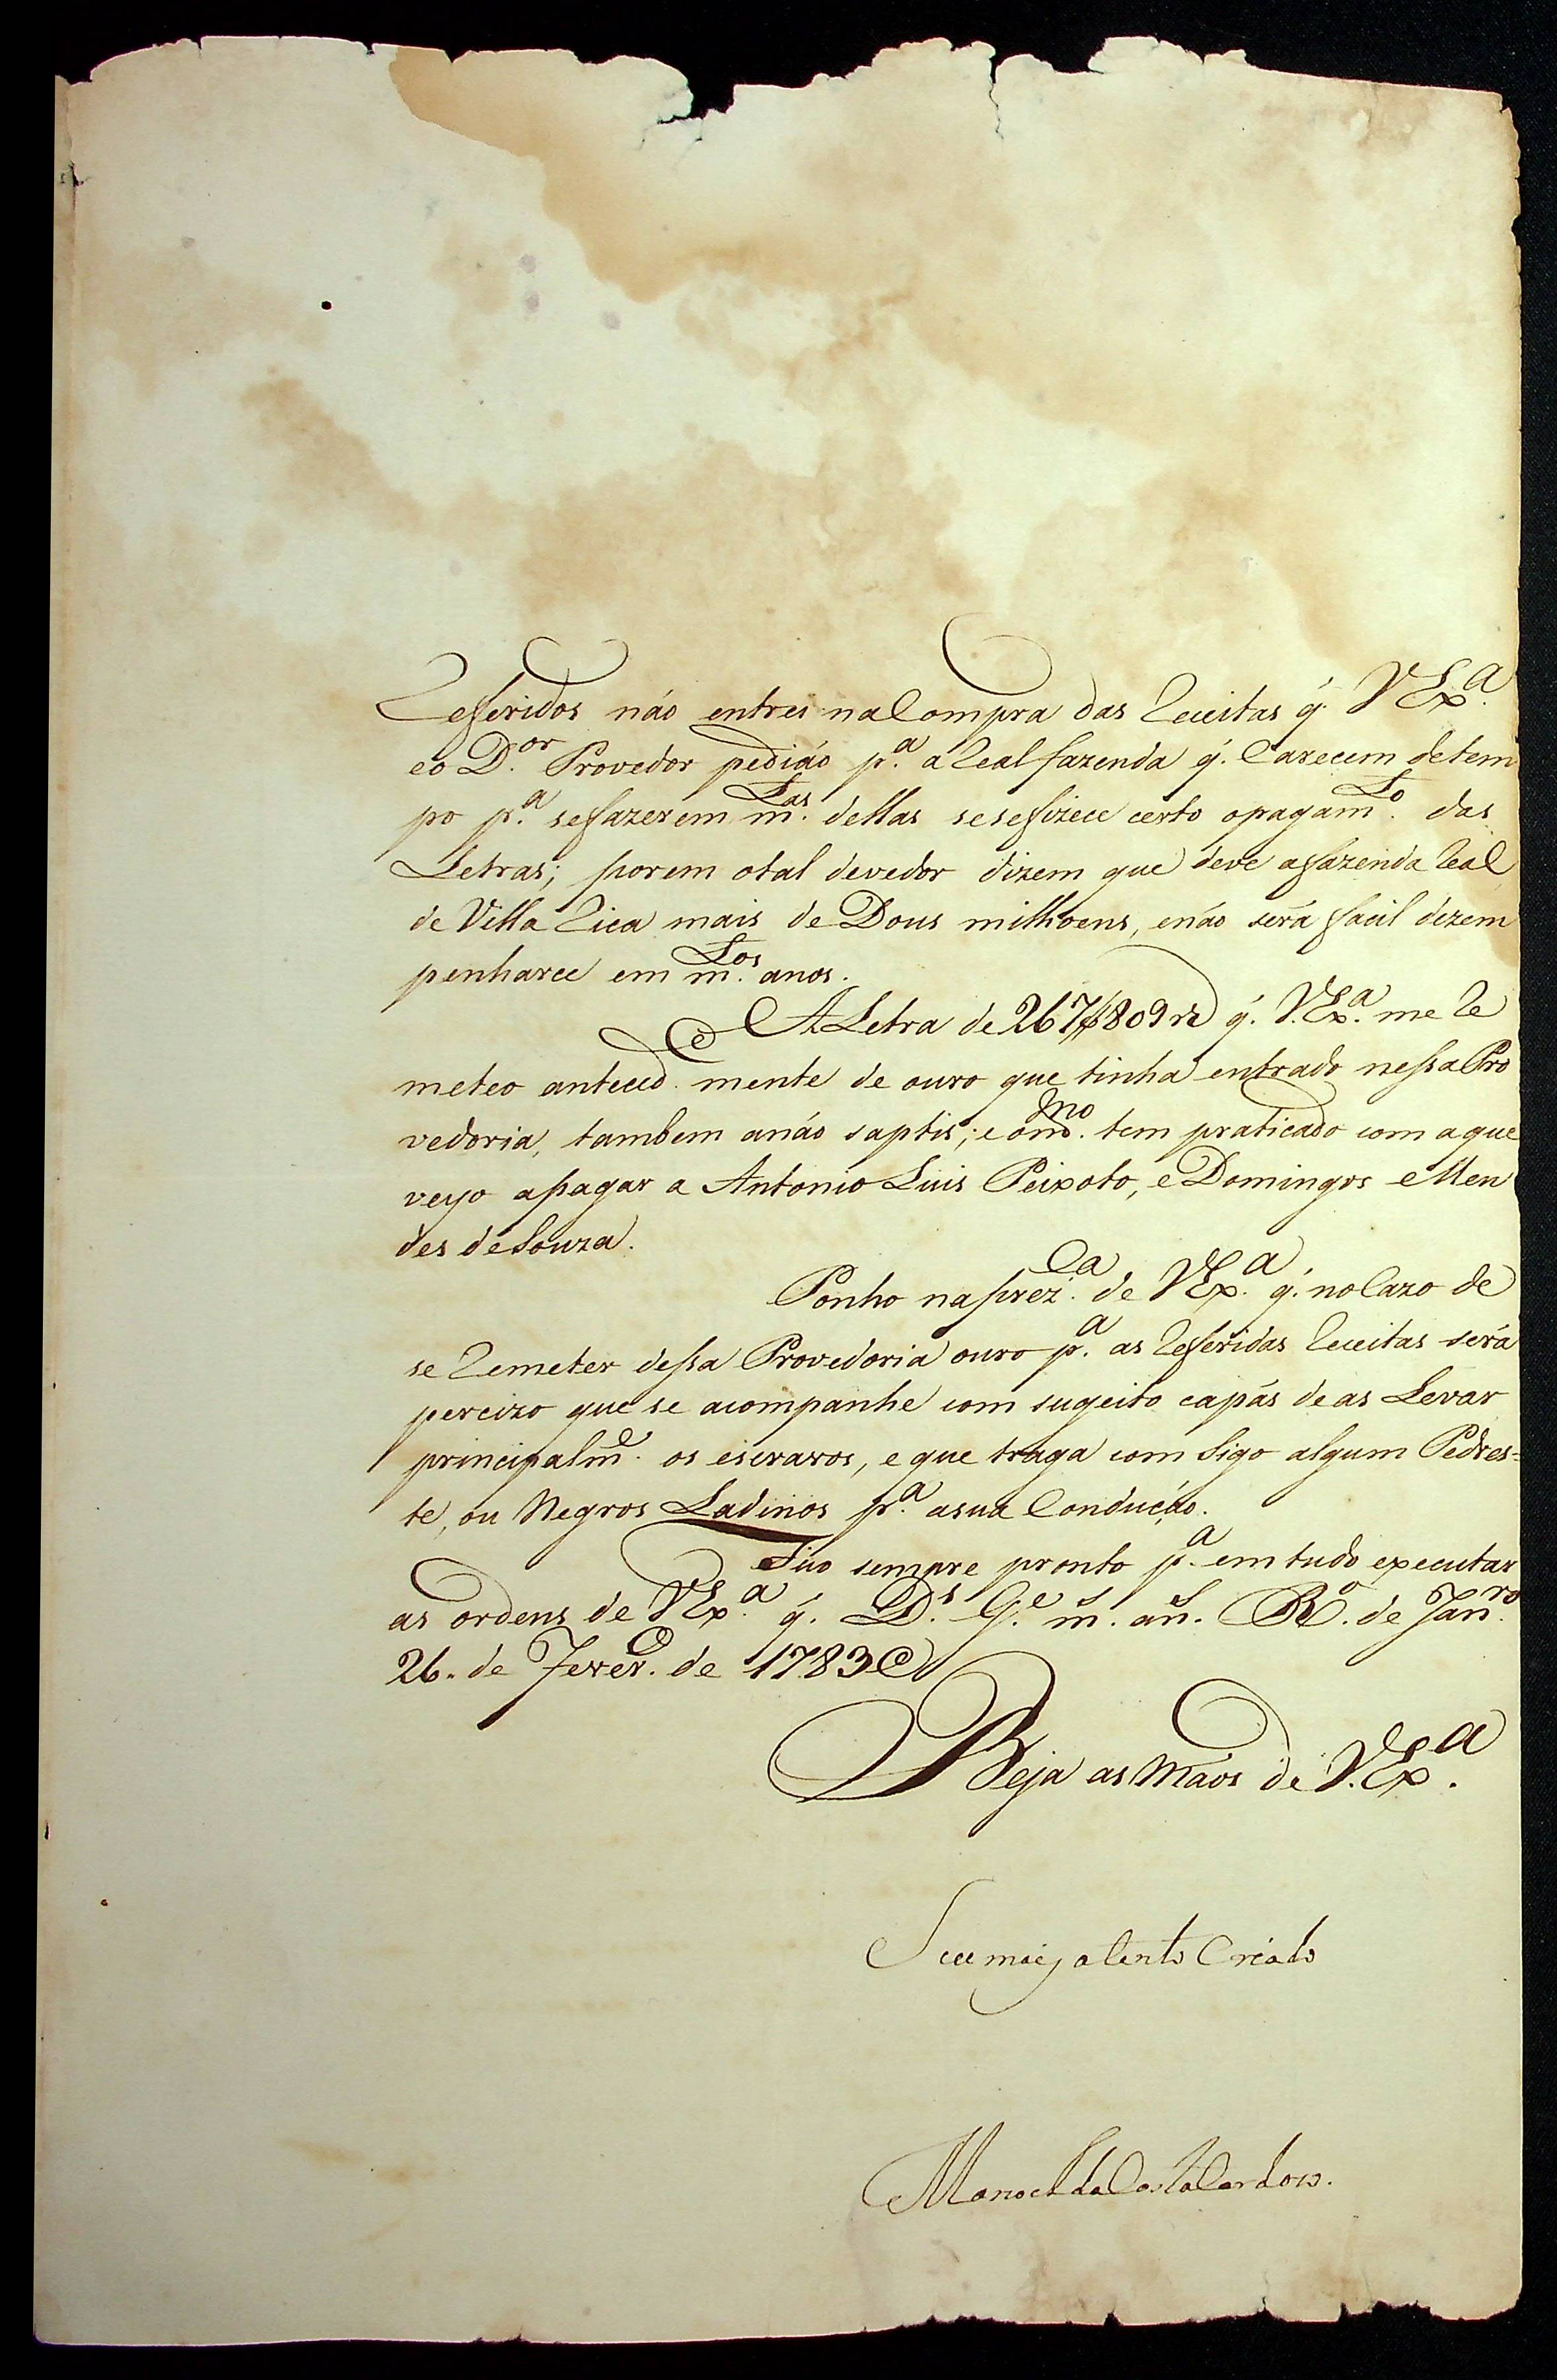 Referidos não entrei na Compra das Receitas q̃. V Exª.
eo D.or Provedor pedião p.ª a Real fazenda q̃. Carecem detem
po p.ª se fazerem m.tas dellas se se fizece certo o pagam.to das
Letras; porem otal devedor dizem que deve afazenda Real
de Villa Rica mais de Dous milhoens, enão será facil dezem
penharce em m.tos anos.
A Letra de 267$809 rs q̃. V.Ex.ª me Re
meteo anteced.mente de ouro que tinha entrado nessa Pro
vedoria, tambem anão saptis; e omº.mo tem praticado com aque
veyo apagar a Antonio Luis Peixoto, e Domingos Men
des de Souza.
Ponho na prez.ca de V Ex.ª q̃. no Cazo de
se Remeter dessa Provedoria ouro p.ª as Referidas Receitas será
percizo que se acompanhe com sugeito capás de as Levar
principalm.e os escravos, e que traga com Sigo algum Pedes=
te, ou Negros Ladinos p.ª asua Condução.
Fico sempre pronto p.ª em tudo executar
as ordens de V Ex.ª q̃. D.s G.e m.s an.s R.º de Jan.ro
26. de Fever.o de 1783
Beja as Mãos de V.Ex.ª
Seu mais atento Criado
Manoel da Costa Cardozo.